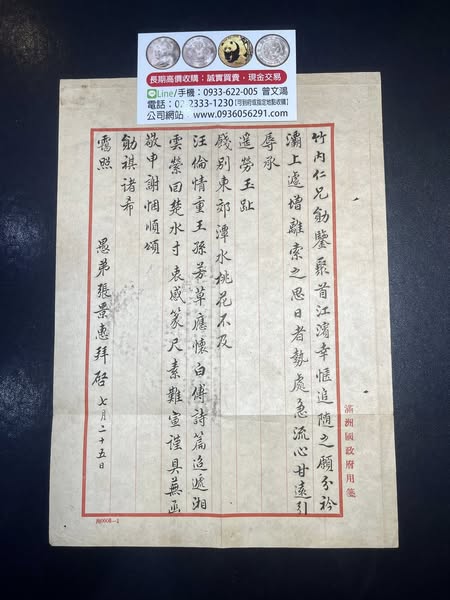 長期高價收購：誠實買賣，現金交易
Line/手機：0933-622-005 曾文鴻
電話：02-2333-1230【可到府或指定地點收購】
公司網站：www.0936056291.com
竹內仁兄勛鑒聚首江濱幸愜追隨之願分衿
灞上遽增離索之思日者勢處急流心甘遠引
辱承
遥勞玉趾
餞別東郊潭水桃花不及
汪倫情重王孫芳草應懷白傅詩篇迢遞湘
雲縈回楚水寸衷感篆尺素難宣謹具蕪函
敬申謝悃順頌
勛祺諸希
靄照
愚弟張景惠拜啓 七月二十五日
滿洲國政府用箋